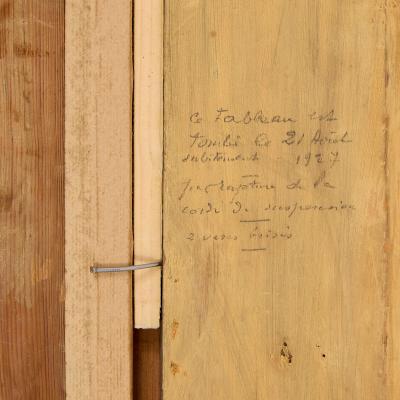 Ce Tableau est
tombé le 21 Août
subitement 1927
par rupture de la
corde de suspension
2 vases brisés